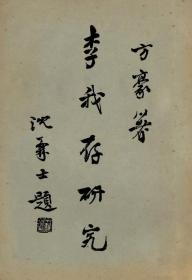 方豪著
李我存研究
沈兼士題